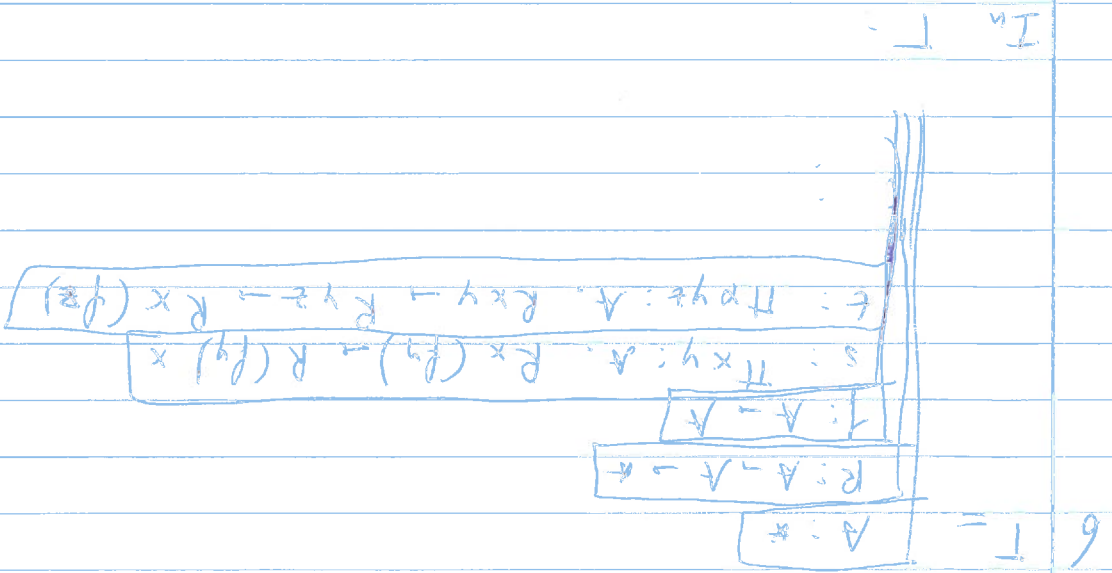 6 Γ = A : *
R : A → A → *
f : A → A
s : Πxy : A. Rx(fy) → R(fy)x
t : Πxyz : A. Rxy → Ryz → Rx(fz)
In Γ